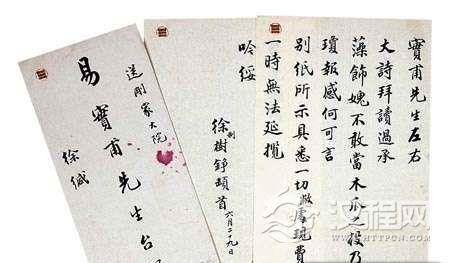 寶甫先生左右
大詩拜讀過承
藻飾媿不敢當木瓜之投乃
瓊報感何可言
別紙所示具悉一切敝處現費
一時無法延攬
吟綏
制徐樹錚頓首六月二十九日
送剛家大院
易寶甫先生台
徐緘
汉程网
HTTPCN.COM